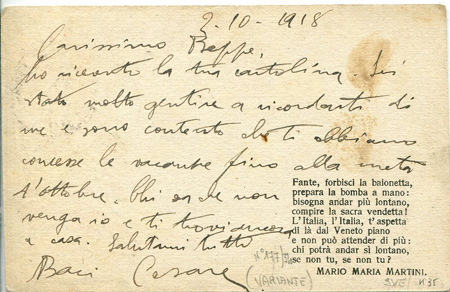 2-10-1918
Carissimo Beppe,
ho ricevuto la tua cartolina. Sei
stato molto gentile a ricordarti di
me e sono contento che ti abbiano
concesse le vacanze fino alla metà
d'ottobre. Chi sa che non
venga io e ti
a casa. Salutami tutti
Baci Cesare
Fante, forbisci la baionetta,
prepara la bomba a mano:
bisogna andar più lontano,
compire la sacra vendetta!
L'Italia, l'Italia, t'aspetta
di là dal Veneto piano
e non può attender di più:
chi potrà andar sì lontano,
se non tu, se non tu?
MARIO MARIA MARTINI.
(VARIANTE)